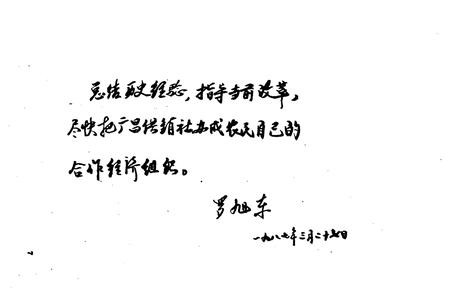 总结历史经验，指导当前改革，
尽快把广昌供销社办成农民自己的
合作经济组织。
罗旭东
一九八七年三月二十七日